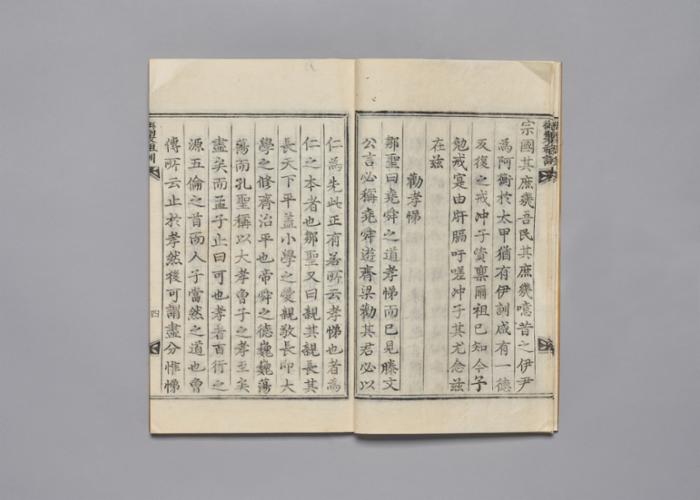 宗國其庶幾吾民其庶幾噫昔之伊尹
爲阿衡於太甲猶有伊訓咸有一德
反復之戒沖子賞稟爾祖已知今予
勉戒寔由肝膈吁嗟沖子其尤念玆
在玆
勸孝悌
鄒聖曰堯舜之道孝悌而已見滕文
公言必稱堯舜遊齊梁勸其君必以
仁爲先此正有若所云孝悌也者爲
仁之本者也鄒聖又曰親其親長其
長天下平蓋小學之愛親敬長卽大
學之修齊治平也帝舜之德巍巍蕩
蕩而孔聖稱以大孝曾子之孝至矣
盡矣而孟子止曰可也孝者百行之
源五倫之首而人子當然之道也曾
傳所云止於孝然後可謂盡分惟悌
四